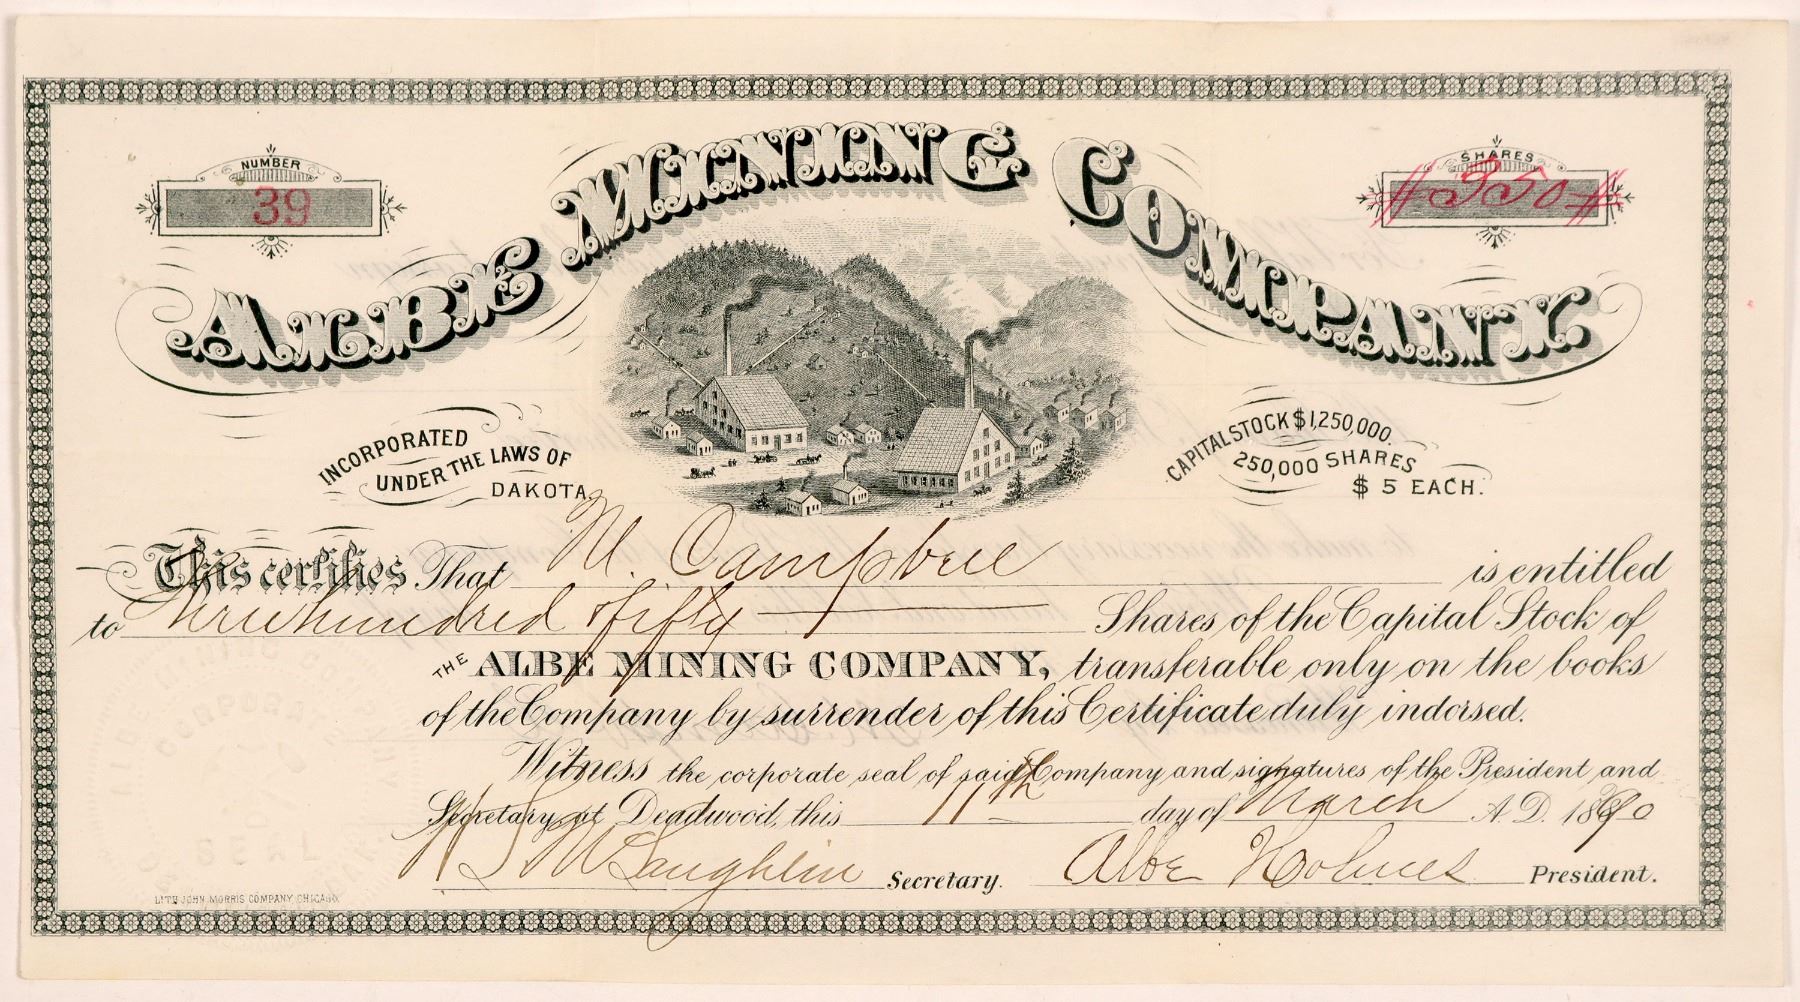 NUMBER
39
SHARES
#350#
ALBE MINING COMPANY.
INCORPORATED
UNDER THE LAWS OF
DAKOTA
CAPITAL STOCK $1,250,000.
250,000 SHARES
$ 5 EACH.
This certifies That M. Campbell is entitled
to Three hundred & fifty Shares of the Capital Stock of
THE ALBE MINING COMPANY, transferable only on the books
of the Company by surrender of this Certificate duly indorsed.
Witness the corporate seal of said Company and signatures of the President and
Secretary at Deadwood, this 11th day of March A.D. 1890
W S McLaughlin Secretary. Albe Holmes President.
LITH JOHN MORRIS COMPANY CHICAGO.